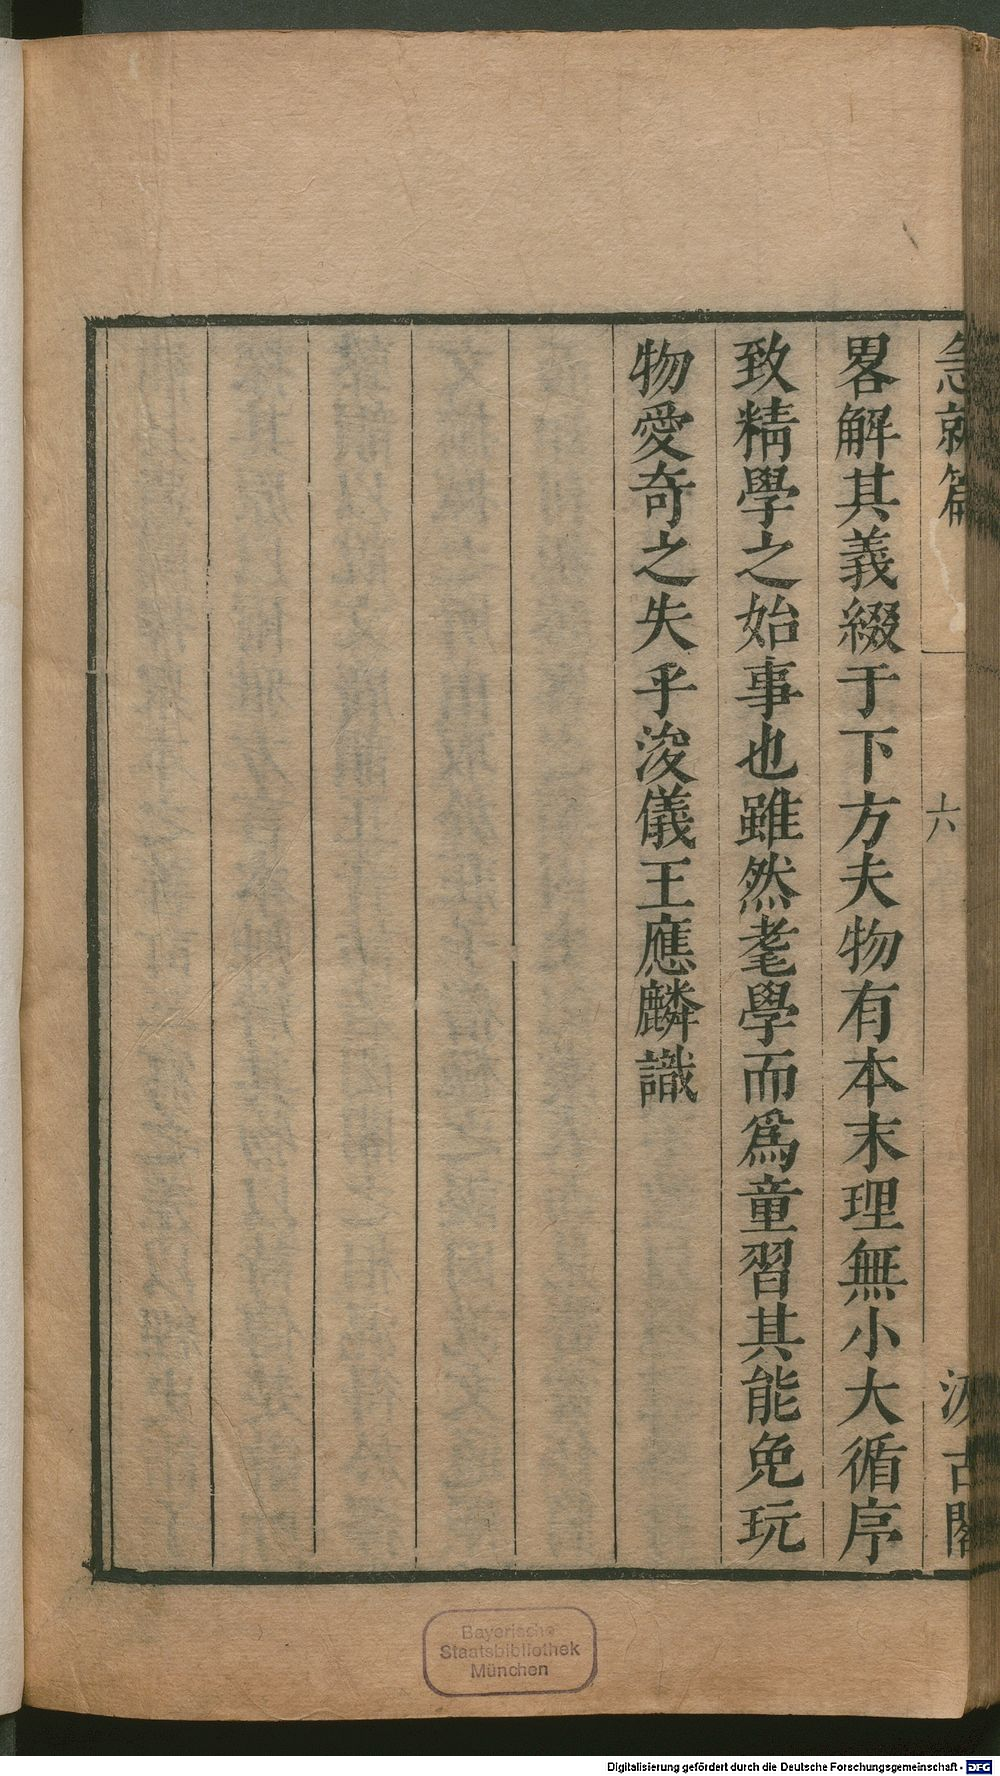 急就篇 六 汲古閣
畧解其義綴于下方夫物有本末理無小大循序
致精學之始事也雖然耄學而爲童習其能免玩
物愛奇之失乎浚儀王應麟識
Bayerische
Staatsbibliothek
München
Digitalisierung gefördert durch die Deutsche Forschungsgemeinschaft - DFG